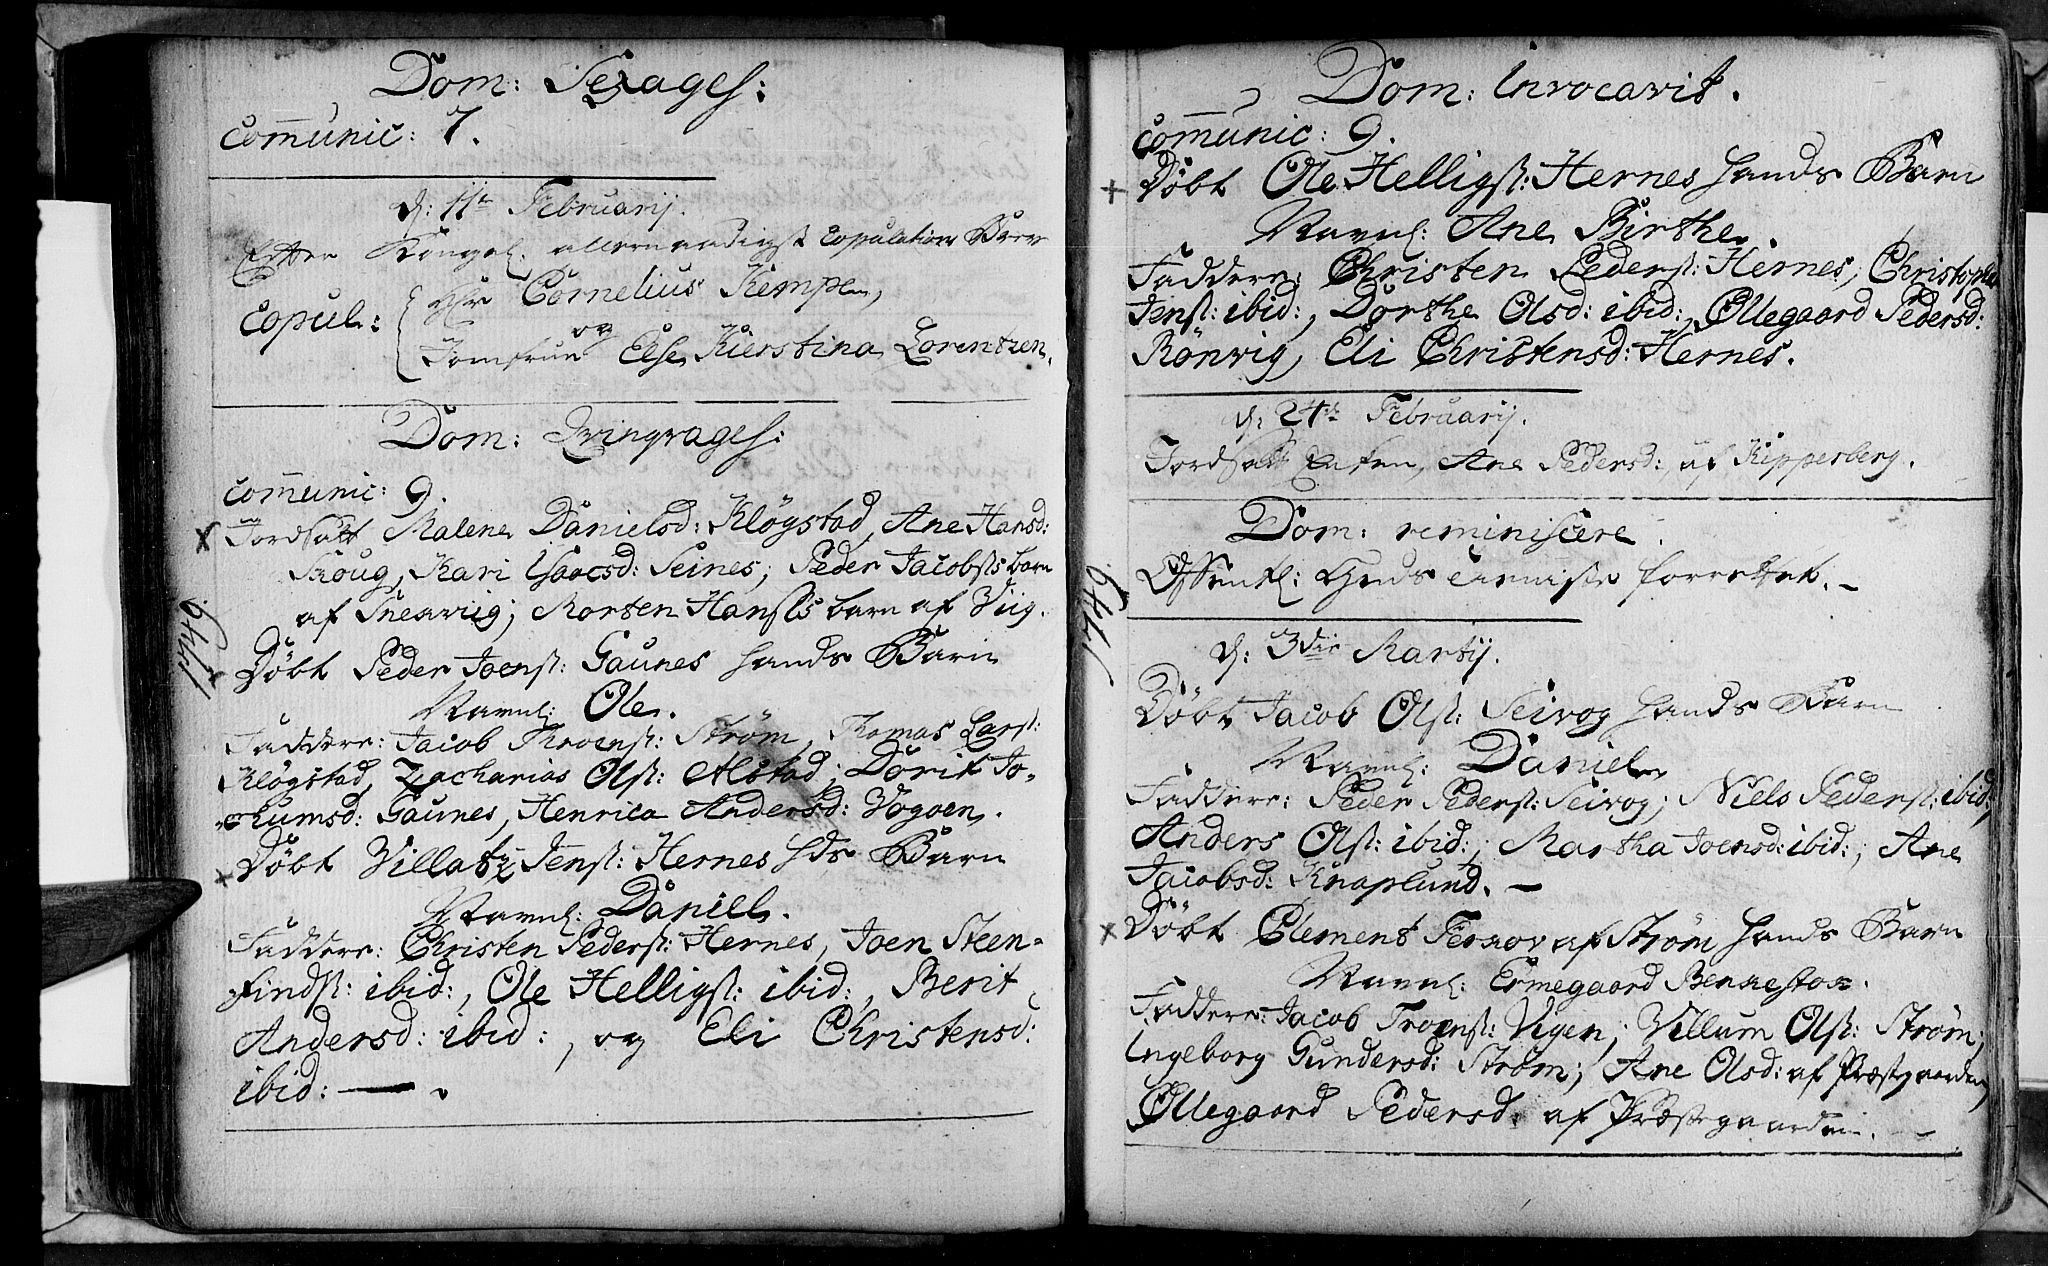 Dom: Sexages:
Communic: 7.
d: 11te Februarij.
Efter Kongel: allernaadigst Copulations Brev
Copul: Hr Cornelius Kempe,
og
Jomfrue Else Kierstina Lorentzen.
Dom: Qvinqvages:
Communic: 9.
Jordsatt Malene Danielsd: Kløgstad, Ane Hansd:
Skoug, Kari Isaacsd: Seines; Peder Jacobsøs barn
af Snevig; Morten Hansøs barn af Viig.
1749
Døbt Peder Joensø: Gaunes hands Barn
Navnl: Ole.
Faddere: Jacob Troensø: Strøm, Thomas Larsø:
Kløgstad, Zacharias Olsø: Alstad; Dorit Jo-
chumsd: Gaunes, Henrica Andersd: Vogøen.
Døbt Villatz Jensø: Hernes hds Barn
Navnl: Daniel.
Faddere: Christen Pedersø: Hernes, Joen Steen-
findsø: ibid:, Ole Helligsø: ibid:, Berit
Andersd: ibid:, og Eli Christensd:
ibid: —.
Dom: Invocavit.
Communic: 9.
Døbt Ole Helligsø: Hernes hands Barn
Navnl: Ane Birthe.
Faddere: Christen Pedersø: Hernes, Christopher
Jensø: ibid:, Dorthe Olsd: ibid: Ollegaard Pedersd:
Rønvig, Eli Christensd: Hernes.
d: 24de Februarij.
Jordsatt Enken, Ane Pedersd: af Kipperberg.
Dom: reminiscere.
Offentl: Guds tieniste forrettet. —
1749
d: 3die Martij.
Døbt Jacob Olsø: Seivog hands Barn
Navnl: Daniel
Faddere: Peder Pedersø: Seivog; Niels Pedersø: ibid:,
Anders Olsø: ibid:; Martha Joensd: ibid:; Ane
Jacobsd: Knaplund. —
Døbt Clement af Strøm hands Barn
Navnl: Ermegaard Benkestok.
Faddere: Jacob Troensø: Vigen; Villum Olsø: Strøm;
Ingeborg Gundersd: Strøm; Ane Olsd: af Præstgaarden,
Ollegaard Pedersd. af Præstegaarden. —